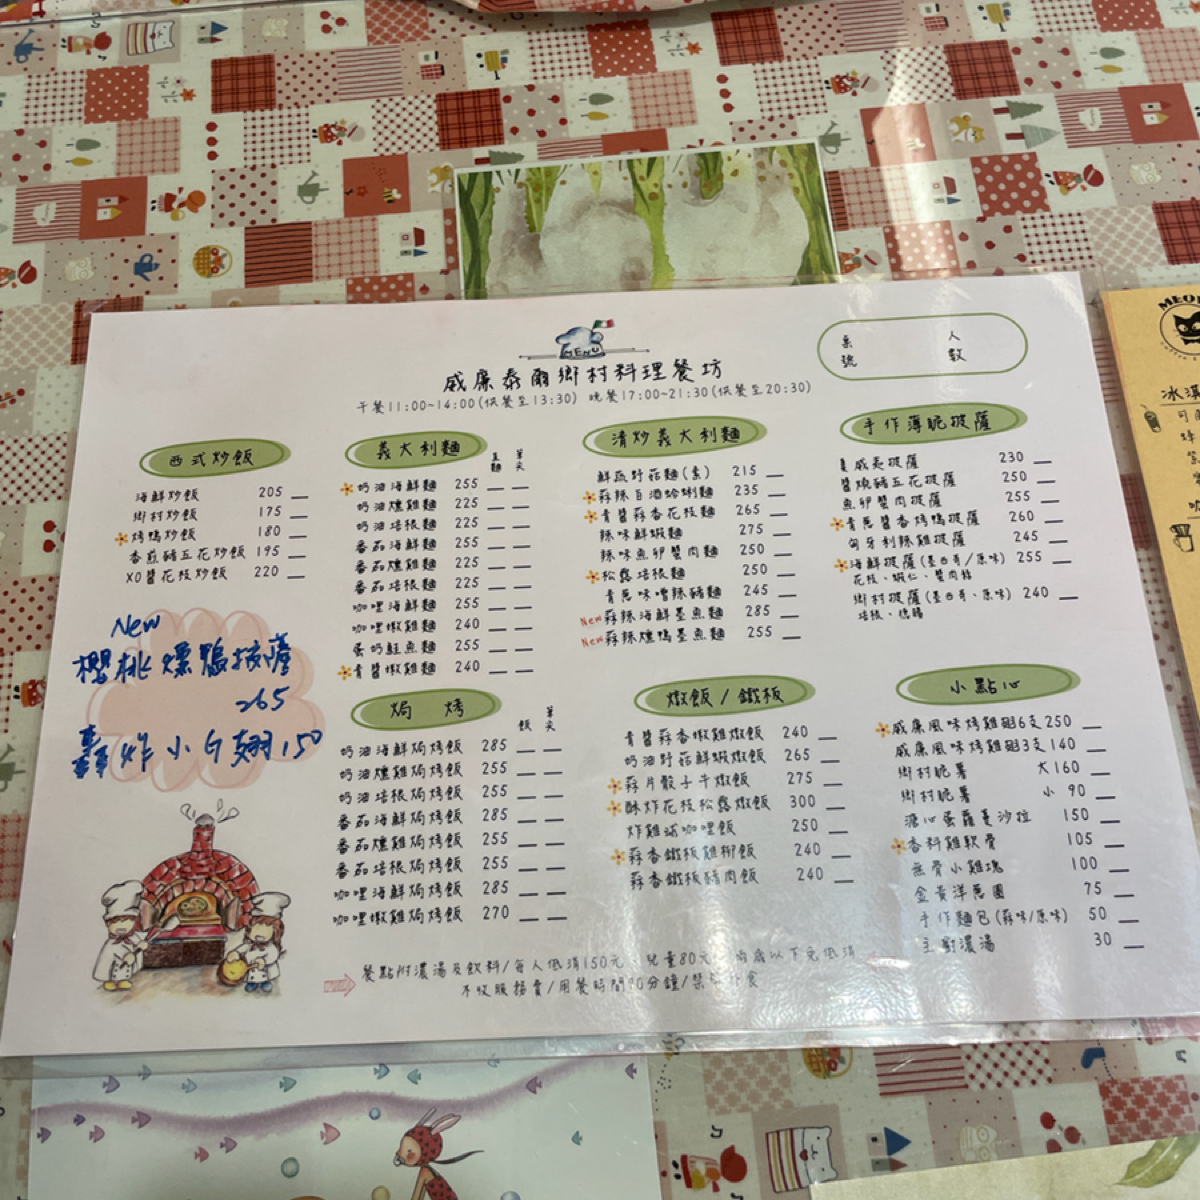 MENU
威廉泰爾鄉村料理餐坊
午餐11:00~14:00(供餐至13:30) 晚餐17:00~21:30(供餐至20:30)
桌號
人數
西式炒飯
海鮮炒飯 205
鄉村炒飯 175
烤鴨炒飯 180
香煎豬五花炒飯 195
XO醬花枝炒飯 220
New
櫻桃燻鴨披薩
265
轟炸小G翅150
義大利麵
直麵 筆尖
奶油海鮮麵 255
奶油燻雞麵 225
奶油培根麵 225
番茄海鮮麵 255
番茄燻雞麵 225
番茄培根麵 225
咖哩海鮮麵 255
咖哩燉雞麵 240
蛋奶鮭魚麵 255
青醬燉雞麵 240
焗 烤
飯 筆尖
奶油海鮮焗烤飯 285
奶油燻雞焗烤飯 255
奶油培根焗烤飯 255
番茄海鮮焗烤飯 285
番茄燻雞焗烤飯 255
番茄培根焗烤飯 255
咖哩海鮮焗烤飯 285
咖哩燉雞焗烤飯 270
清炒義大利麵
鮮蔬野菇麵(素) 215
蒜辣白酒蛤蜊麵 235
青醬蒜香花枝麵 265
辣味鮮蝦麵 275
辣味魚卵蟹肉麵 250
松露培根麵 250
青蔥味噌辣豬麵 245
New 蒜辣海鮮墨魚麵 285
New 蒜辣燻鴨墨魚麵 255
燉飯/鐵板
青醬蒜香燉雞燉飯 240
奶油野菇鮮蝦燉飯 265
蒜片骰子牛燉飯 275
酥炸花枝松露燉飯 300
炸雞球咖哩飯 250
蒜香鐵板雞柳飯 240
蒜香鐵板豬肉飯 240
手作薄脆披薩
夏威夷披薩 230
醬燒豬五花披薩 250
魚卵蟹肉披薩 255
青蔥醬香烤鴨披薩 260
匈牙利辣雞披薩 245
海鮮披薩(墨西哥/原味) 255
花枝、蝦仁、蟹肉絲
鄉村披薩(墨西哥、原味) 240
培根、德腸
小點心
威廉風味烤雞翅6支 250
威廉風味烤雞翅3支 140
鄉村脆薯 大160
鄉村脆薯 小 90
溏心蛋蘿蔓沙拉 150
香料雞軟骨 105
無骨小雞塊 100
金黃洋蔥圈 75
手作麵包(蒜味/原味) 50
主廚濃湯 30
餐點附濃湯及飲料/每人低消150元、兒童80元、兩歲以下免低消
不收服務費/用餐時間90分鐘/禁帶外食
冰淇
可